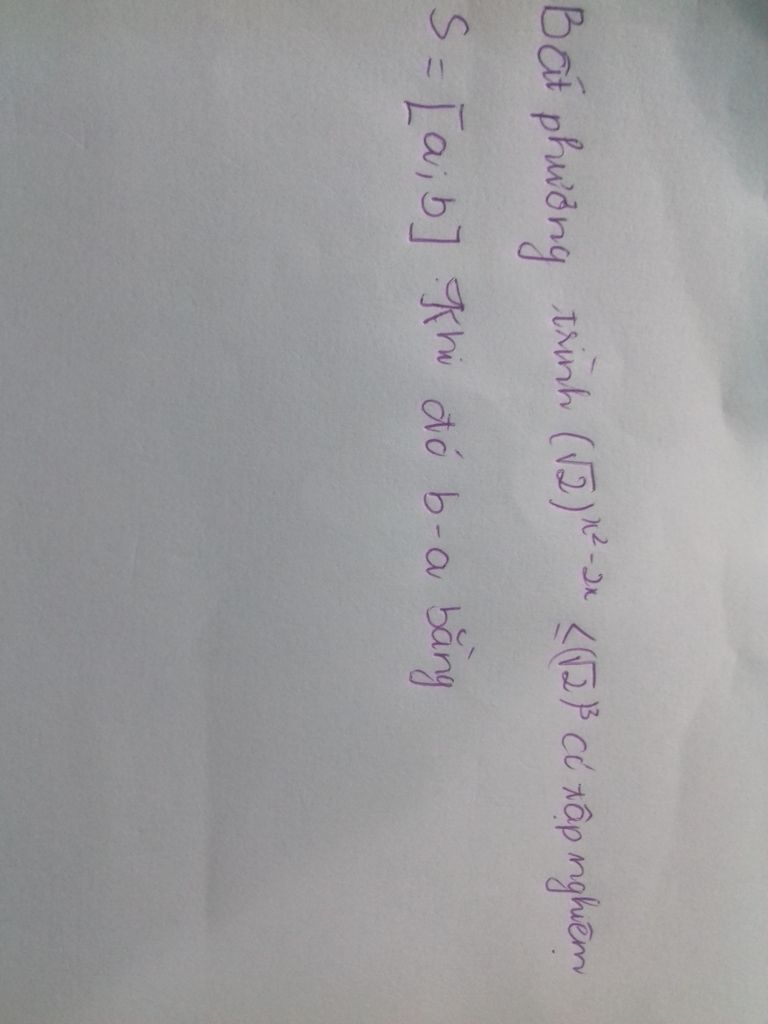 Bất phương trình (√2)^{x²-2x} ≤ (√2)³ có tập nghiệm
S = [a; b] Khi đó b-a bằng